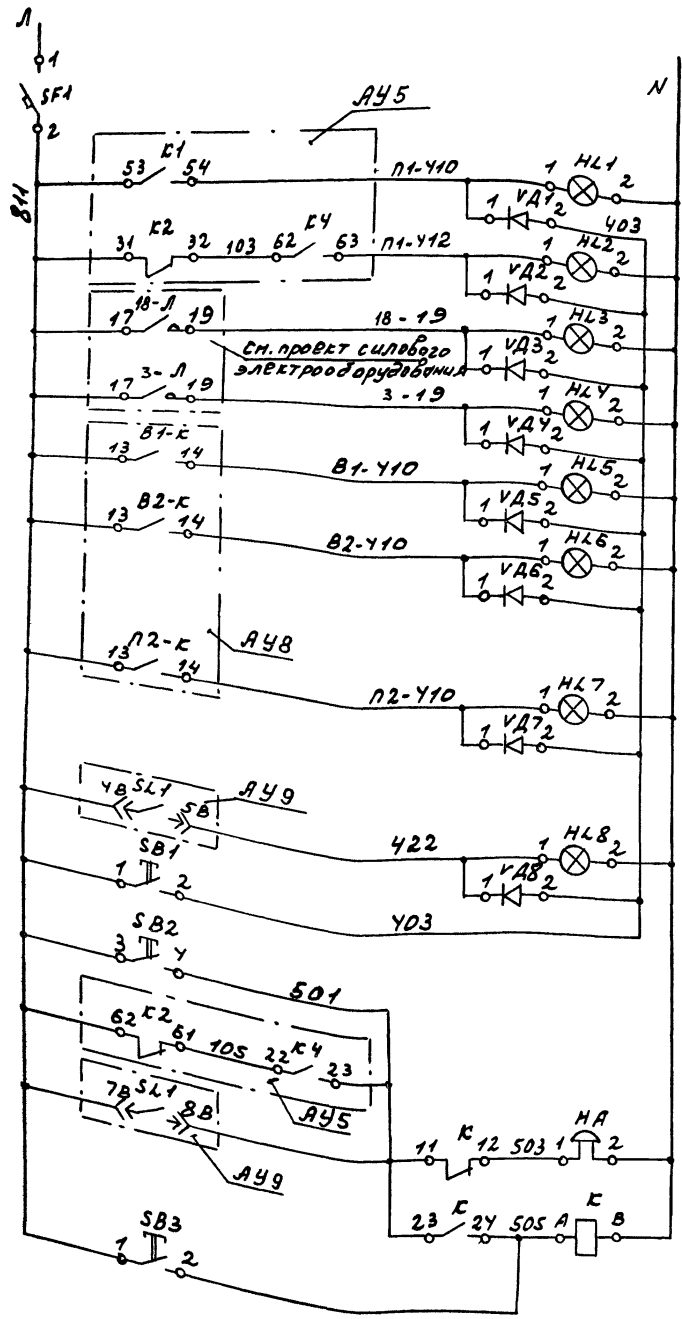 Л N
1
SF1
2
811
АУ5
53 К1 54 П1-У10 1 HL1 2
1 VД1 2 403
31 К2 32 103 62 К4 63 П1-У12 1 HL2 2
1 VД2 2
17 18-Л 19 18-19 1 HL3 2
см. проект силового
электрооборудования
1 VД3 2
17 3-Л 19 3-19 1 HL4 2
1 VД4 2
13 В1-К 14 В1-У10 1 HL5 2
1 VД5 2
13 В2-К 14 В2-У10 1 HL6 2
1 VД6 2
АУ8
13 П2-К 14 П2-У10 1 HL7 2
1 VД7 2
АУ9
4В SL1 5В 422 1 HL8 2
1 VД8 2
1 SB1 2 403
3 SB2 4 501
62 К2 61 105 22 К4 23
АУ5
7В SL1 8В
АУ9
11 К 12 503 1 НА 2
23 К 24 505 А К В
1 SB3 2